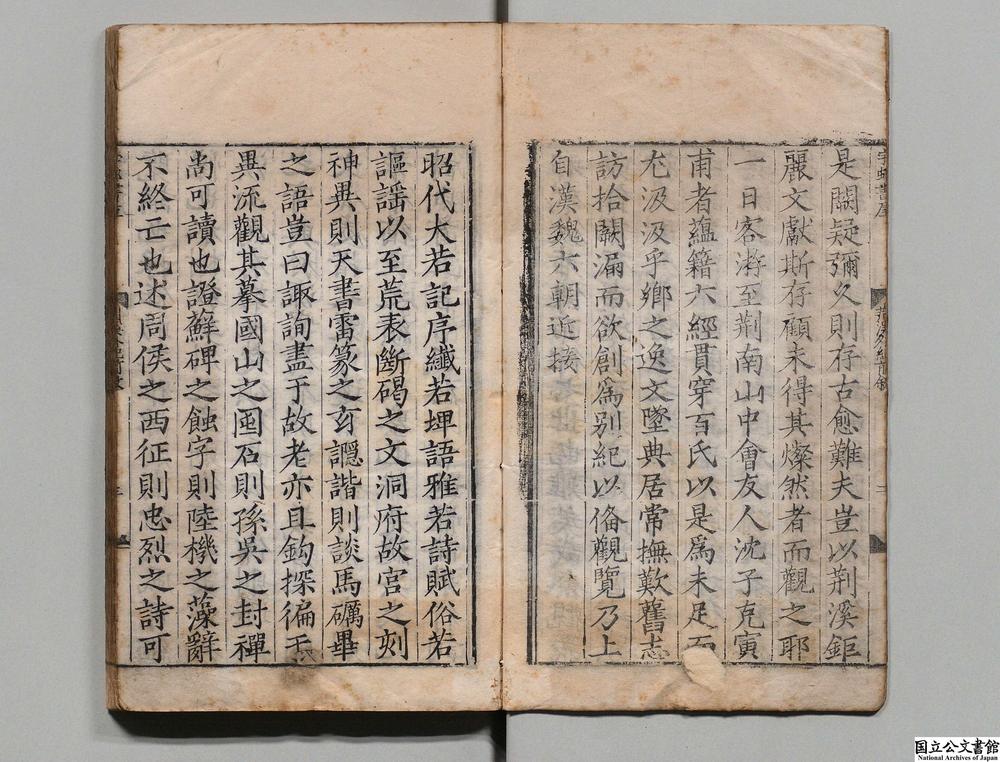 是闕疑彌久則存古愈難夫豈以荆溪鉅
麗文獻斯存顧未得其燦然者而觀之耶
一日客游至荆南山中會友人沈子克寅
甫者蘊籍六經貫穿百氏以是爲未足而
尤汲汲乎鄉之逸文墜典居常撫歎舊志
訪拾闕漏而欲創爲别紀以俻觀覽乃上
自漢魏六朝近接
昭代大若記序纖若埤語雅若詩賦俗若
謳謡以至荒表斷碣之文洞府故宫之刻
神異則天書雷篆之玄讔諧則談馬礪畢
之語豈曰諏詢盡于故老亦且鈎探徧于
異流觀其摹國山之囤石則孫吳之封禪
尚可讀也證蘚碑之蝕字則陸機之藻辭
不終亡也述周侯之西征則忠烈之詩可
国立公文書館
National Archives of Japan